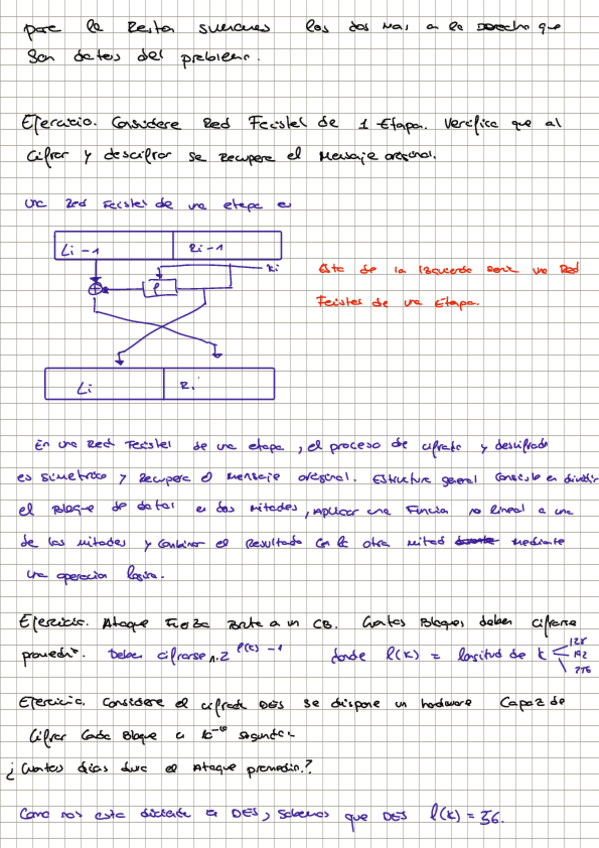 para la Resta sumamos los dos mas a la derecha que
son datos del problema.
Ejercicio. Considere Red Feistel de 1 Etapa. Verifica que al
cifrar y descifrar se Recupera el Mensaje original.
una Red Feistel de una etapa es
Li-1 Ri-1
Ki
⊕ f
Este de la Izquierda seria una Red
Feistel de una Etapa.
Li Ri
En una Red Feistel de una etapa, el proceso de cifrado y descifrado
es simetrico y Recupera el mensaje original. Estructura general consiste en dividir
el Bloque de datos en dos mitades, aplicar una Funcion no lineal a una
de las mitades y combinar el Resultado con la otra mitad mediante
una operacion logica.
Ejercicio. Ataque Fuerza Bruta a un CB. Cuantos Bloques deben cifrarse
promedio. Deben cifrarse n.2^l(k)-1 donde l(k) = longitud de k 128
192
256
Ejercicio. Considere el cifrado DES se dispone un hardware Capaz de
cifrar Cada Bloque en segundos.
¿Cuantos dias dura el Ataque promedio.?
Como nos esta diciendo en DES, sabemos que DES l(k) = 56.